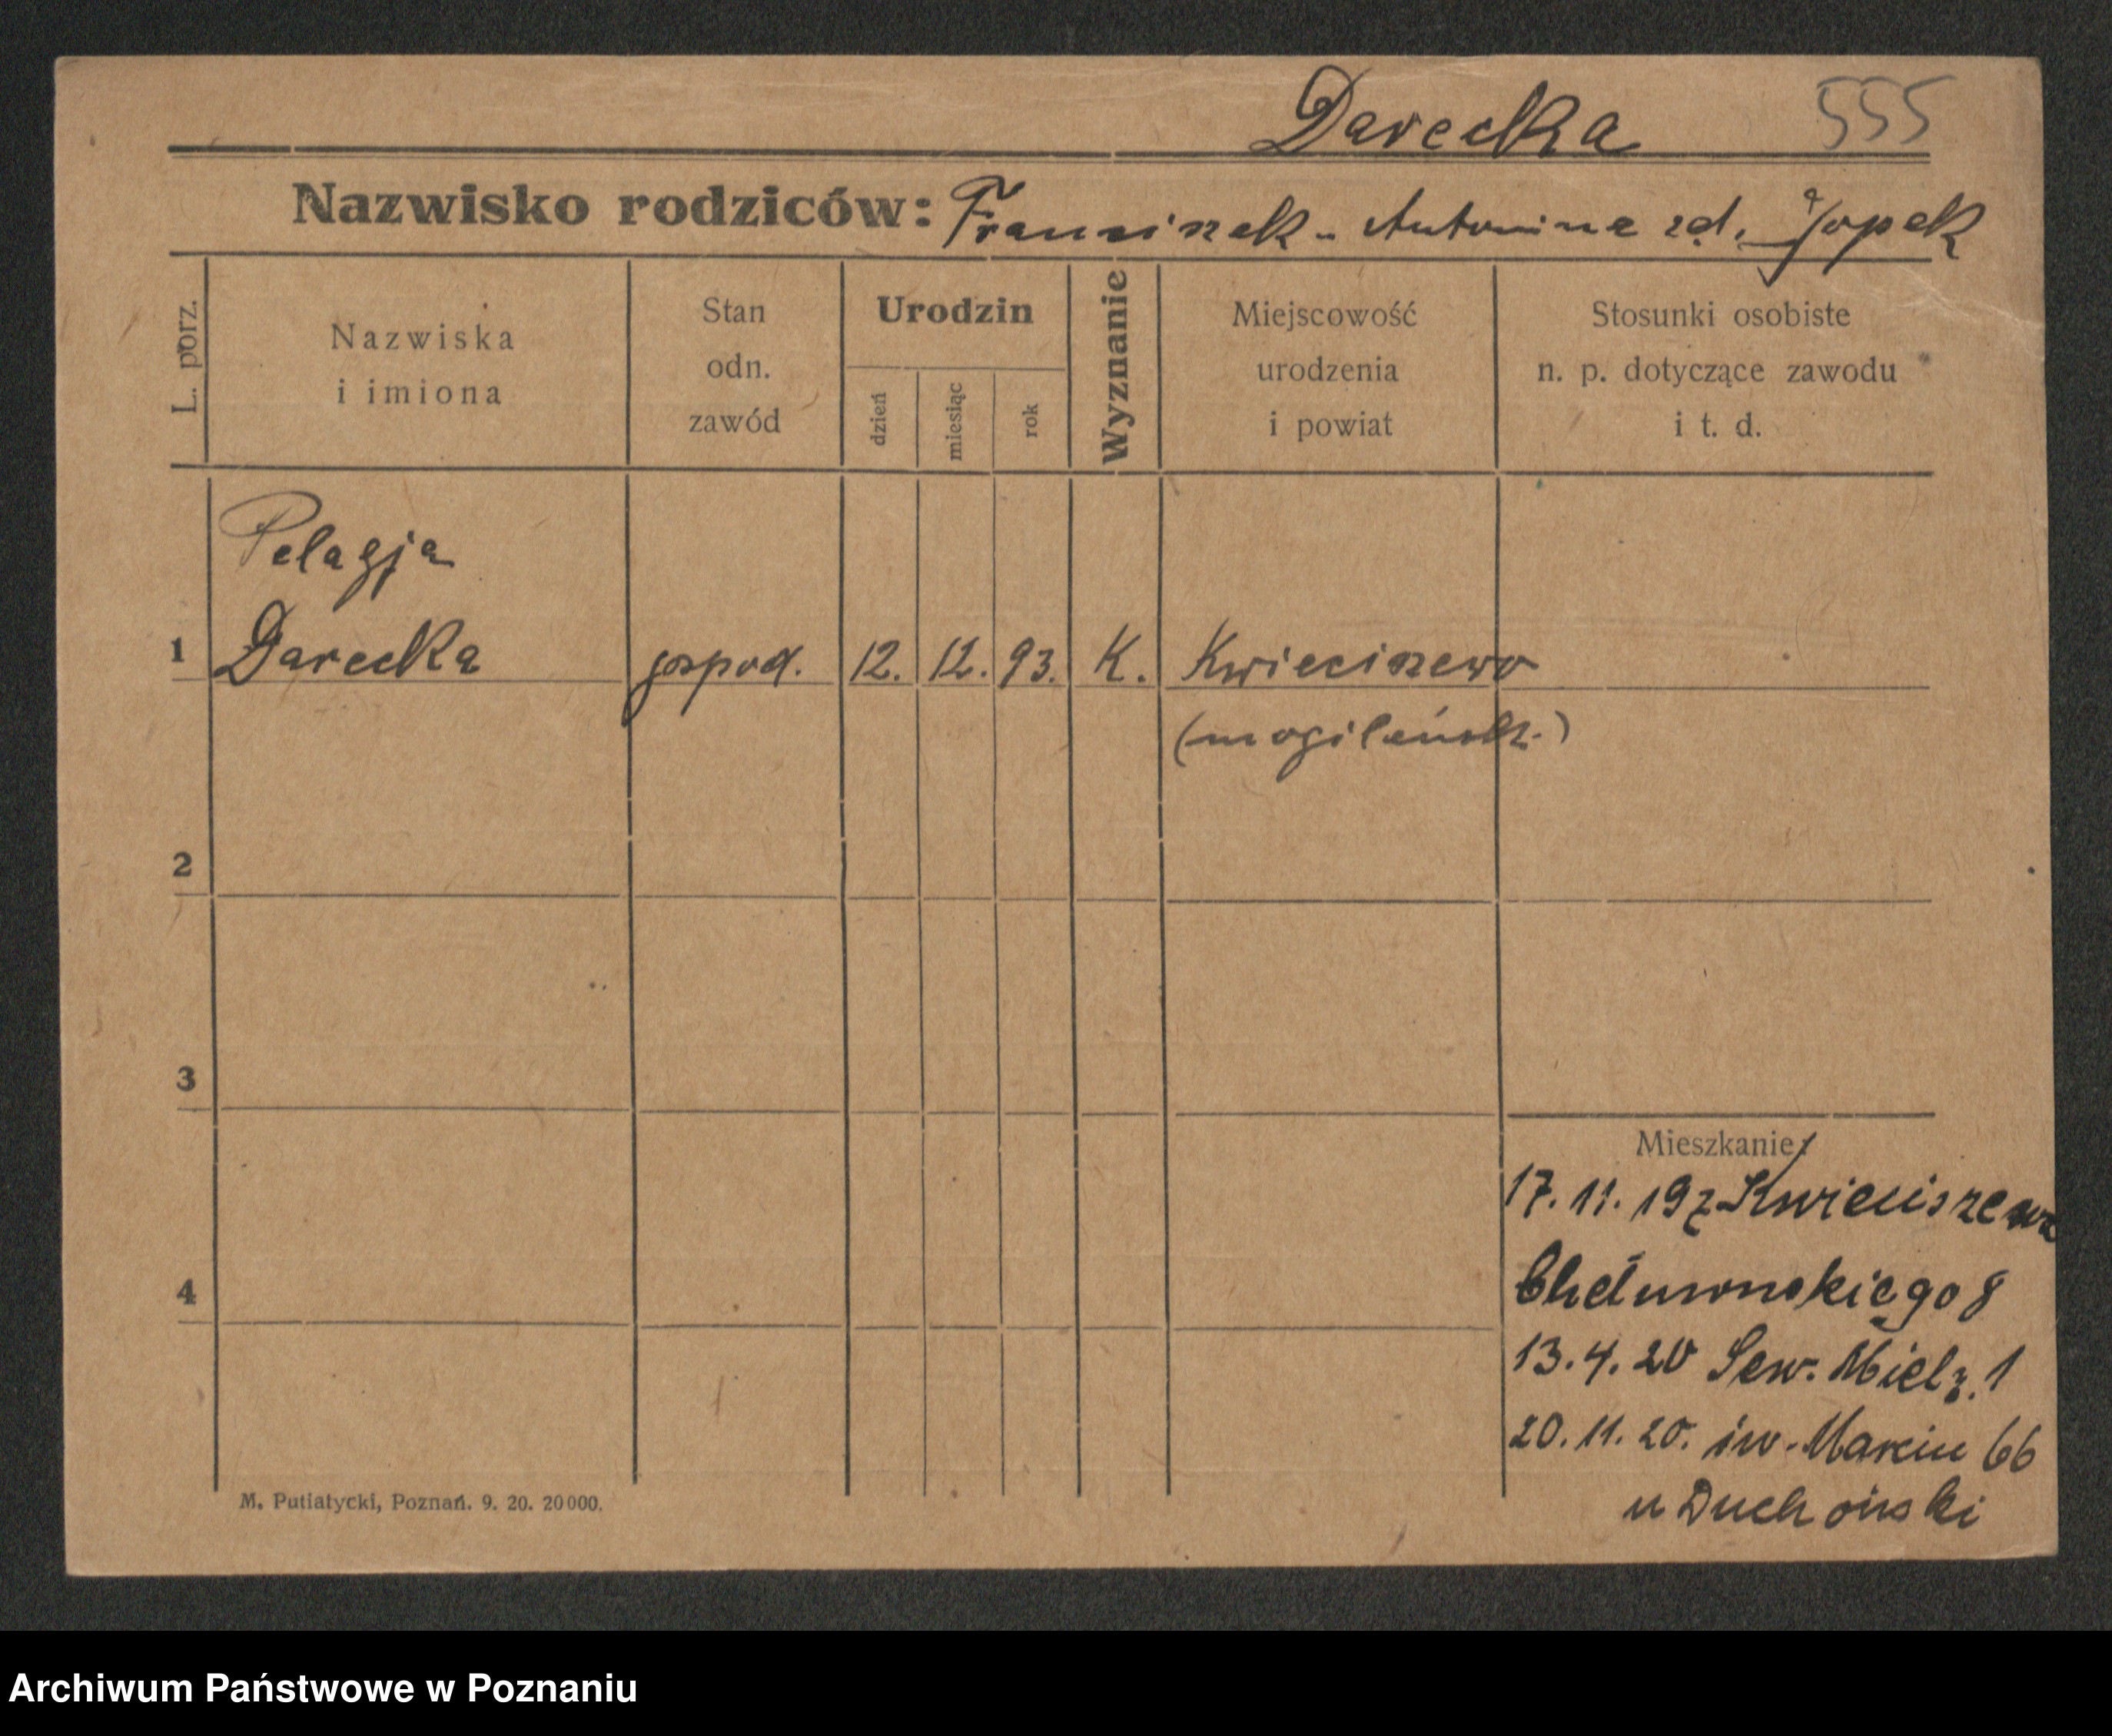 Darecka 555
Nazwisko rodziców: Franciszek - Antonina zd. Jopek
L. porz.
Nazwiska
i imiona
Stan
odn.
zawód
Urodzin
dzień
miesiąc
rok
Wyznanie
Miejscowość
urodzenia
i powiat
Stosunki osobiste
n. p. dotyczące zawodu
i t. d.
Pelagja
1 Darecka gospod. 12. 12. 93. K. Kwieciszewo
(mogileńsk.)
2
3
4
Mieszkanie:
17. 11. 19 z Kwieciszewa
Chełmońskiego 8
13. 4. 20 Sew. Mielż. 1
20. 11. 20. św. Marcin 66
u Duchoński
M. Putiatycki, Poznań. 9. 20. 20000.
Archiwum Państwowe w Poznaniu